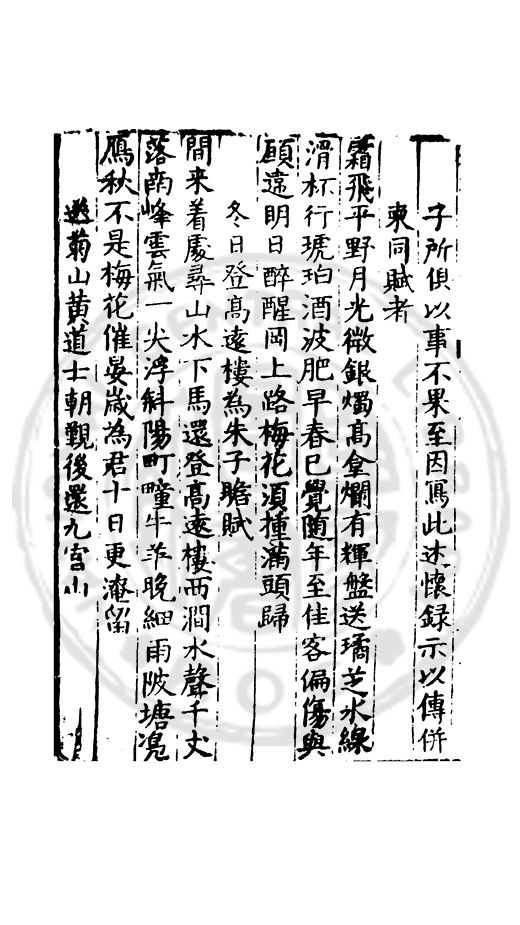 子所俱以事不果至因寫此述懷録示以傳併
柬同賦者
霜飛平野月光微銀燭高拿爛有輝盤送璚芝氷線
滑杯行琥珀酒波肥早春已覺随年至佳客偏傷與
願違明日醉醒岡上路梅花須揷滿頭歸
冬日登高遠樓為朱子瞻賦
間来着處尋山水下馬還登髙逺樓西澗水聲千丈
落南峰雲氣一尖浮斜陽町疃牛羊晚細雨陂塘鳬
鴈秋不是梅花催晏歳為君十日更淹留
送菊山黄道士朝覲後還九宫山